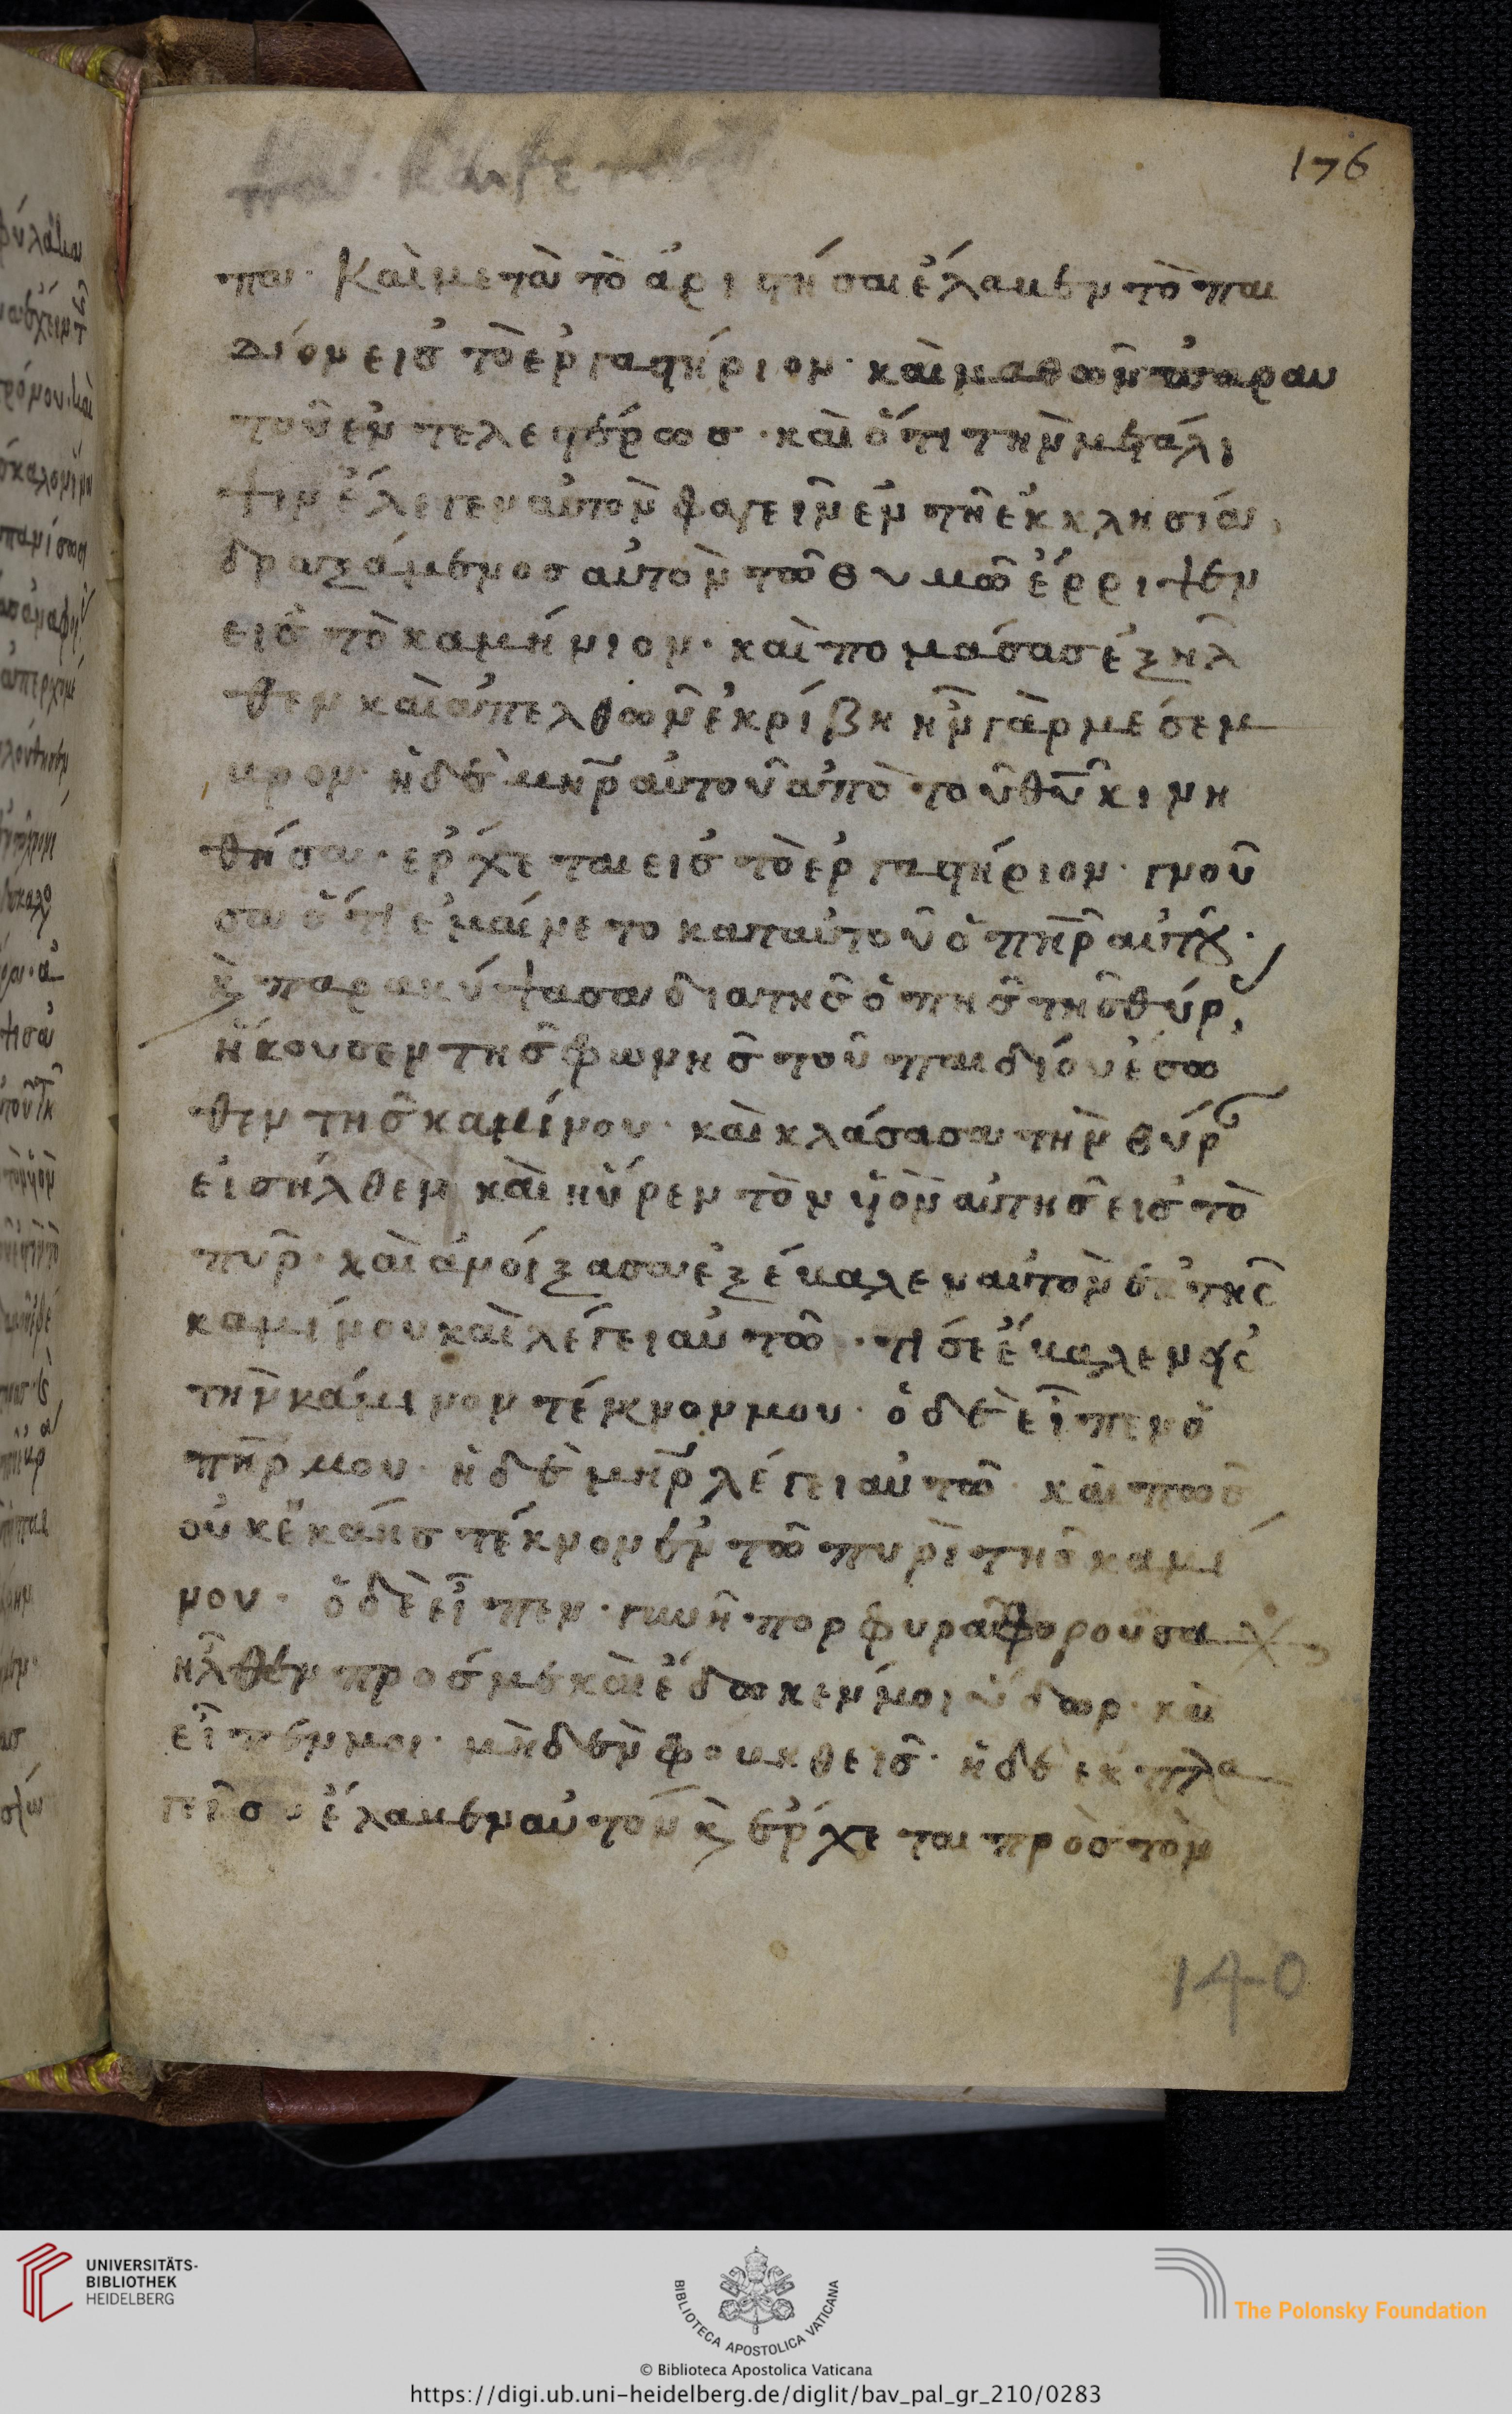 176
πα· Καὶ μετὰ τὸ ἀριστήσαι ἔλαβεν τὸ παι
δίον εἰς τὸ ἐργαστήριον· καὶ μαθὼν παρ αυ
τοῦ ἐντελεστέρως· καὶ ὅτι τὴν μετάλι
ψιν ἔλεγεν αὐτὸν φαγεῖν ἐν τῆ ἐκκλησία,
δραξάμενος αὐτὸν τῶ θυμῶ ἔρριψεν
εἰς τὸ καμήνιον· καὶ πομάσας ἐξῆλ
θεν καὶ ἀπελθὼν ἐκρίβη ἦν γὰρ μέσεμ
βρον· ἡ δὲ μηρ αὐτοῦ ἀπὸ τοῦ θυ κιμη
θήσα· ἔρχεται εἰς τὸ ἐργαστήριον· γνοῦ
σα ὅτι ἐμαίνετο κατ αὐτοῦ ὁ πηρ αὐτοῦ·
κ παρακύψασα διὰ τῆς ὀπῆς τῆς θύρ
ἤκουσεν τῆς φωνῆς τοῦ παιδίου ἔσω
θεν τῆς καμίνου· καὶ κλάσασα τὴν θύρ
εἰσῆλθεν καὶ ηὗρεν τὸν ὑὸν αὐτῆς εἰς τὸ
πῦρ· καὶ ἀνοίξασα ἐξέβαλεν αὐτὸν ἐκ τῆς
καμίνου καὶ λέγει αὐτῶ· τί σε ἔβαλεν εἰς
τὴν κάμινον τέκνον μου· ὁ δὲ εἶπεν ὁ
πηρ μου· ἡ δὲ μηρ λέγει αὐτῶ· καὶ πῶς
οὐκ ἐκάης τέκνον ἐν τῶ πυρὶ τῆς καμί
νου· ὁ δὲ εἶπεν· γυνὴ πορφύρα φοροῦσα
ἦλθεν πρός με καὶ ἔδωκεν μοι ὕδωρ· καὶ
εἶπέν μοι· μηδὲν φουηθεῖς· ἡ δὲ ἐκπλα
γεῖσα ἔλαβεν αὐτὸν κ ἔρχεται πρὸς τὸν
140
UNIVERSITÄTS-
BIBLIOTHEK
HEIDELBERG
BIBLIOTECA APOSTOLICA VATICANA
The Polonsky Foundation
© Biblioteca Apostolica Vaticana
https://digi.ub.uni-heidelberg.de/diglit/bav_pal_gr_210/0283